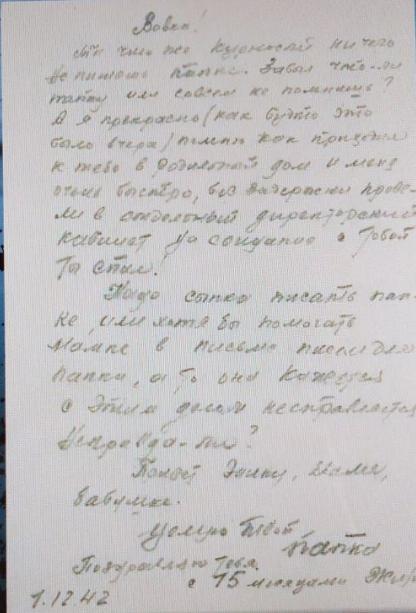 Вовка!
Ты что же курносый ничего
не пишешь папке. Забыл что-ли
папку или совсем не помнишь?
А я прекрасно (как будто это
было вчера) помню как приходил
к тебе в родильный дом и меня
очень быстро, без задержки прове-
ли в отдельный директорский
кабинет на свидание с тобой
Ты спал!
Надо сынка писать пап-
ке, или хотя бы помогать
мамке в письме писем для
папки, а то она кажется
с этим делом несправляется
Неправда-ли?
Привет Энику, маме,
бабушке.
Целую Твой
папка
Поздравляю тебя
с 15 месяцами
1.12.42